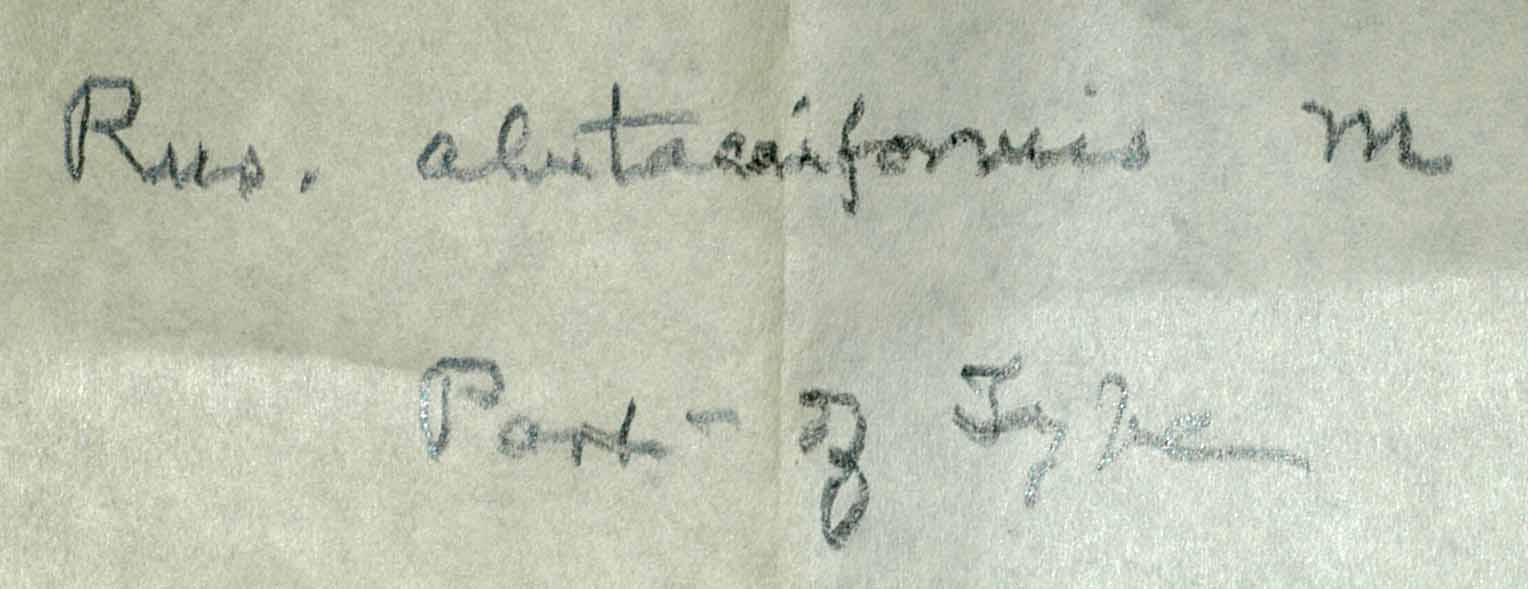 Rus. alutaceiformis M
Part of Type